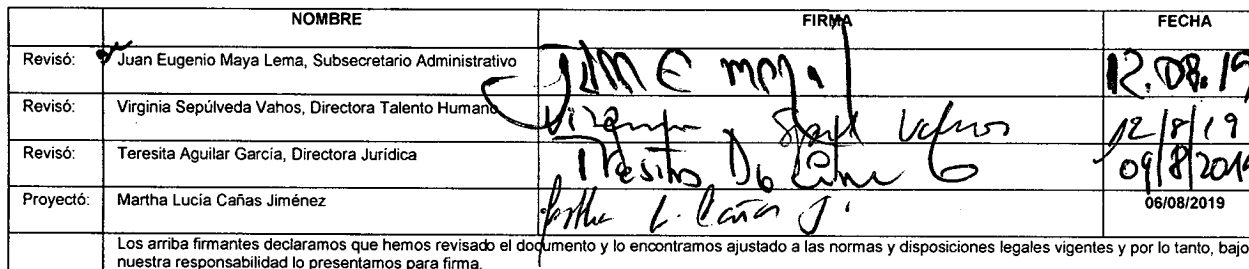 NOMBRE FIRMA FECHA
Revisó: Juan Eugenio Maya Lema, Subsecretario Administrativo 12.08.19
Revisó: Virginia Sepúlveda Vahos, Directora Talento Humano 12/8/19
Revisó: Teresita Aguilar García, Directora Jurídica 09/8/2019
Proyectó: Martha Lucía Cañas Jiménez Martha L. Cañas J. 06/08/2019
Los arriba firmantes declaramos que hemos revisado el documento y lo encontramos ajustado a las normas y disposiciones legales vigentes y por lo tanto, bajo
nuestra responsabilidad lo presentamos para firma.